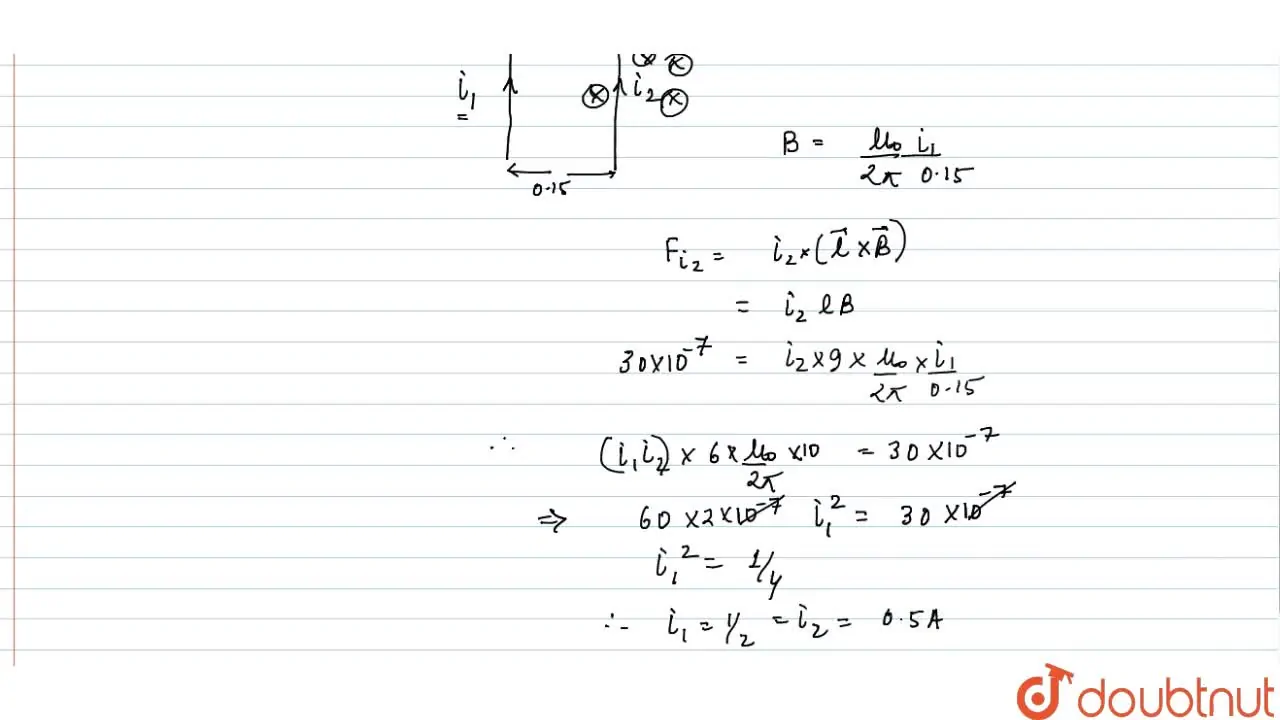 ⊗ ⊗
i₁ ⊗ i₂ ⊗
0.15
B = μ₀/2π i₁/0.15
Fi₂ = i₂ × (l⃗ × B⃗)
= i₂ l B
30×10⁻⁷ = i₂ × 9 × μ₀/2π × i₁/0.15
∴ (i₁i₂) × 6 × μ₀/2π × 10 = 30 × 10⁻⁷
⇒ 60 × 2 × 10⁻⁷ i₁² = 30 × 10⁻⁷
i₁² = 1/4
∴ i₁ = 1/2 = i₂ = 0.5A
doubtnut